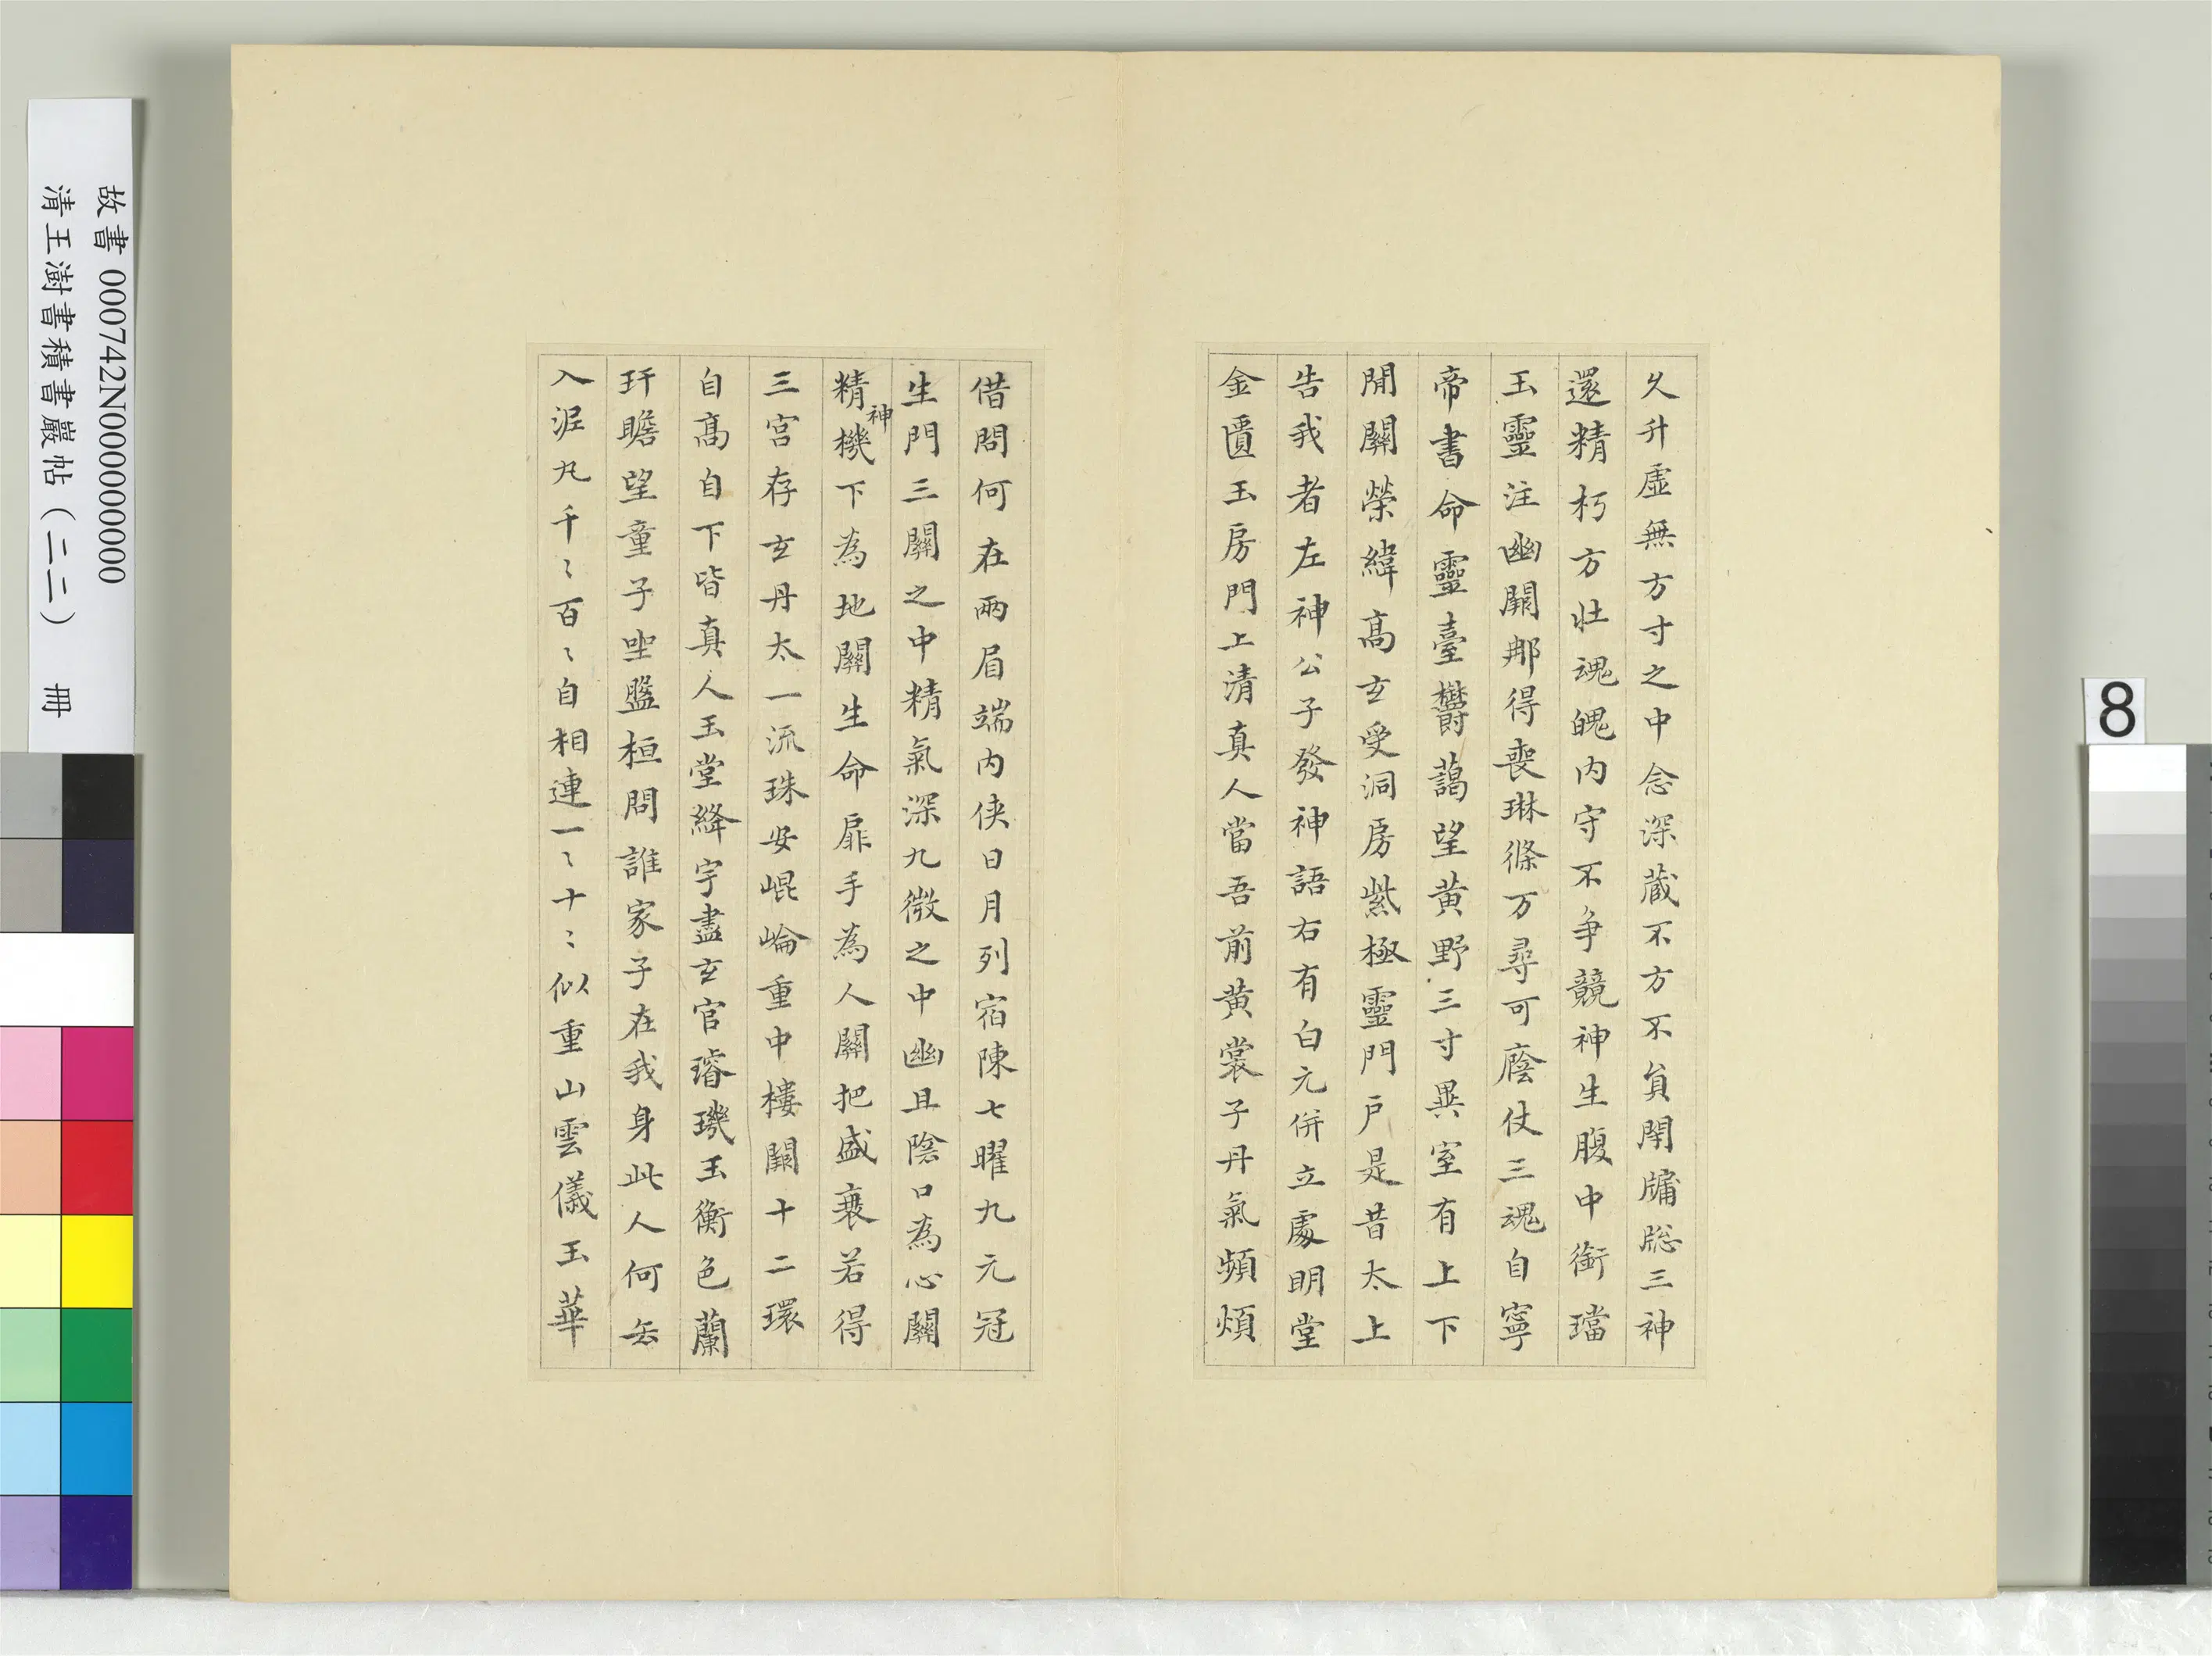 久升虛無方寸之中念深蔵不方不負閑牖牎三神
還精朽方壯魂魄内守不争競神生腹中銜璫
玉靈注幽闕那得喪琳條万尋可廕仗三魂自寧
帝書命靈臺欝藹望黄野三寸異室有上下
閒關榮緯髙玄受洞房紫極靈門戶是昔太上
告我者左神公子發神語右有白元併立處明堂
金匱玉房門上清真人當吾前黄裳子丹氣頻煩
借問何在兩眉端内俠日月列宿陳七曜九元冠
生門三關之中精氣深九微之中幽且陰口為心關
精神機下為地關生命扉手為人關把盛衰若得
三宮存玄丹太一流珠安崐崘重中樓闕十二環
自髙自下皆真人玉堂絳宇盡玄官璿璣玉衡色蘭
玕瞻望童子坐盤桓問誰家子在我身此人何去
入泥丸千〻百〻自相連一〻十〻似重山雲儀玉華
故書 000742N000000000
清王澍書積書巖帖（二二） 冊
8